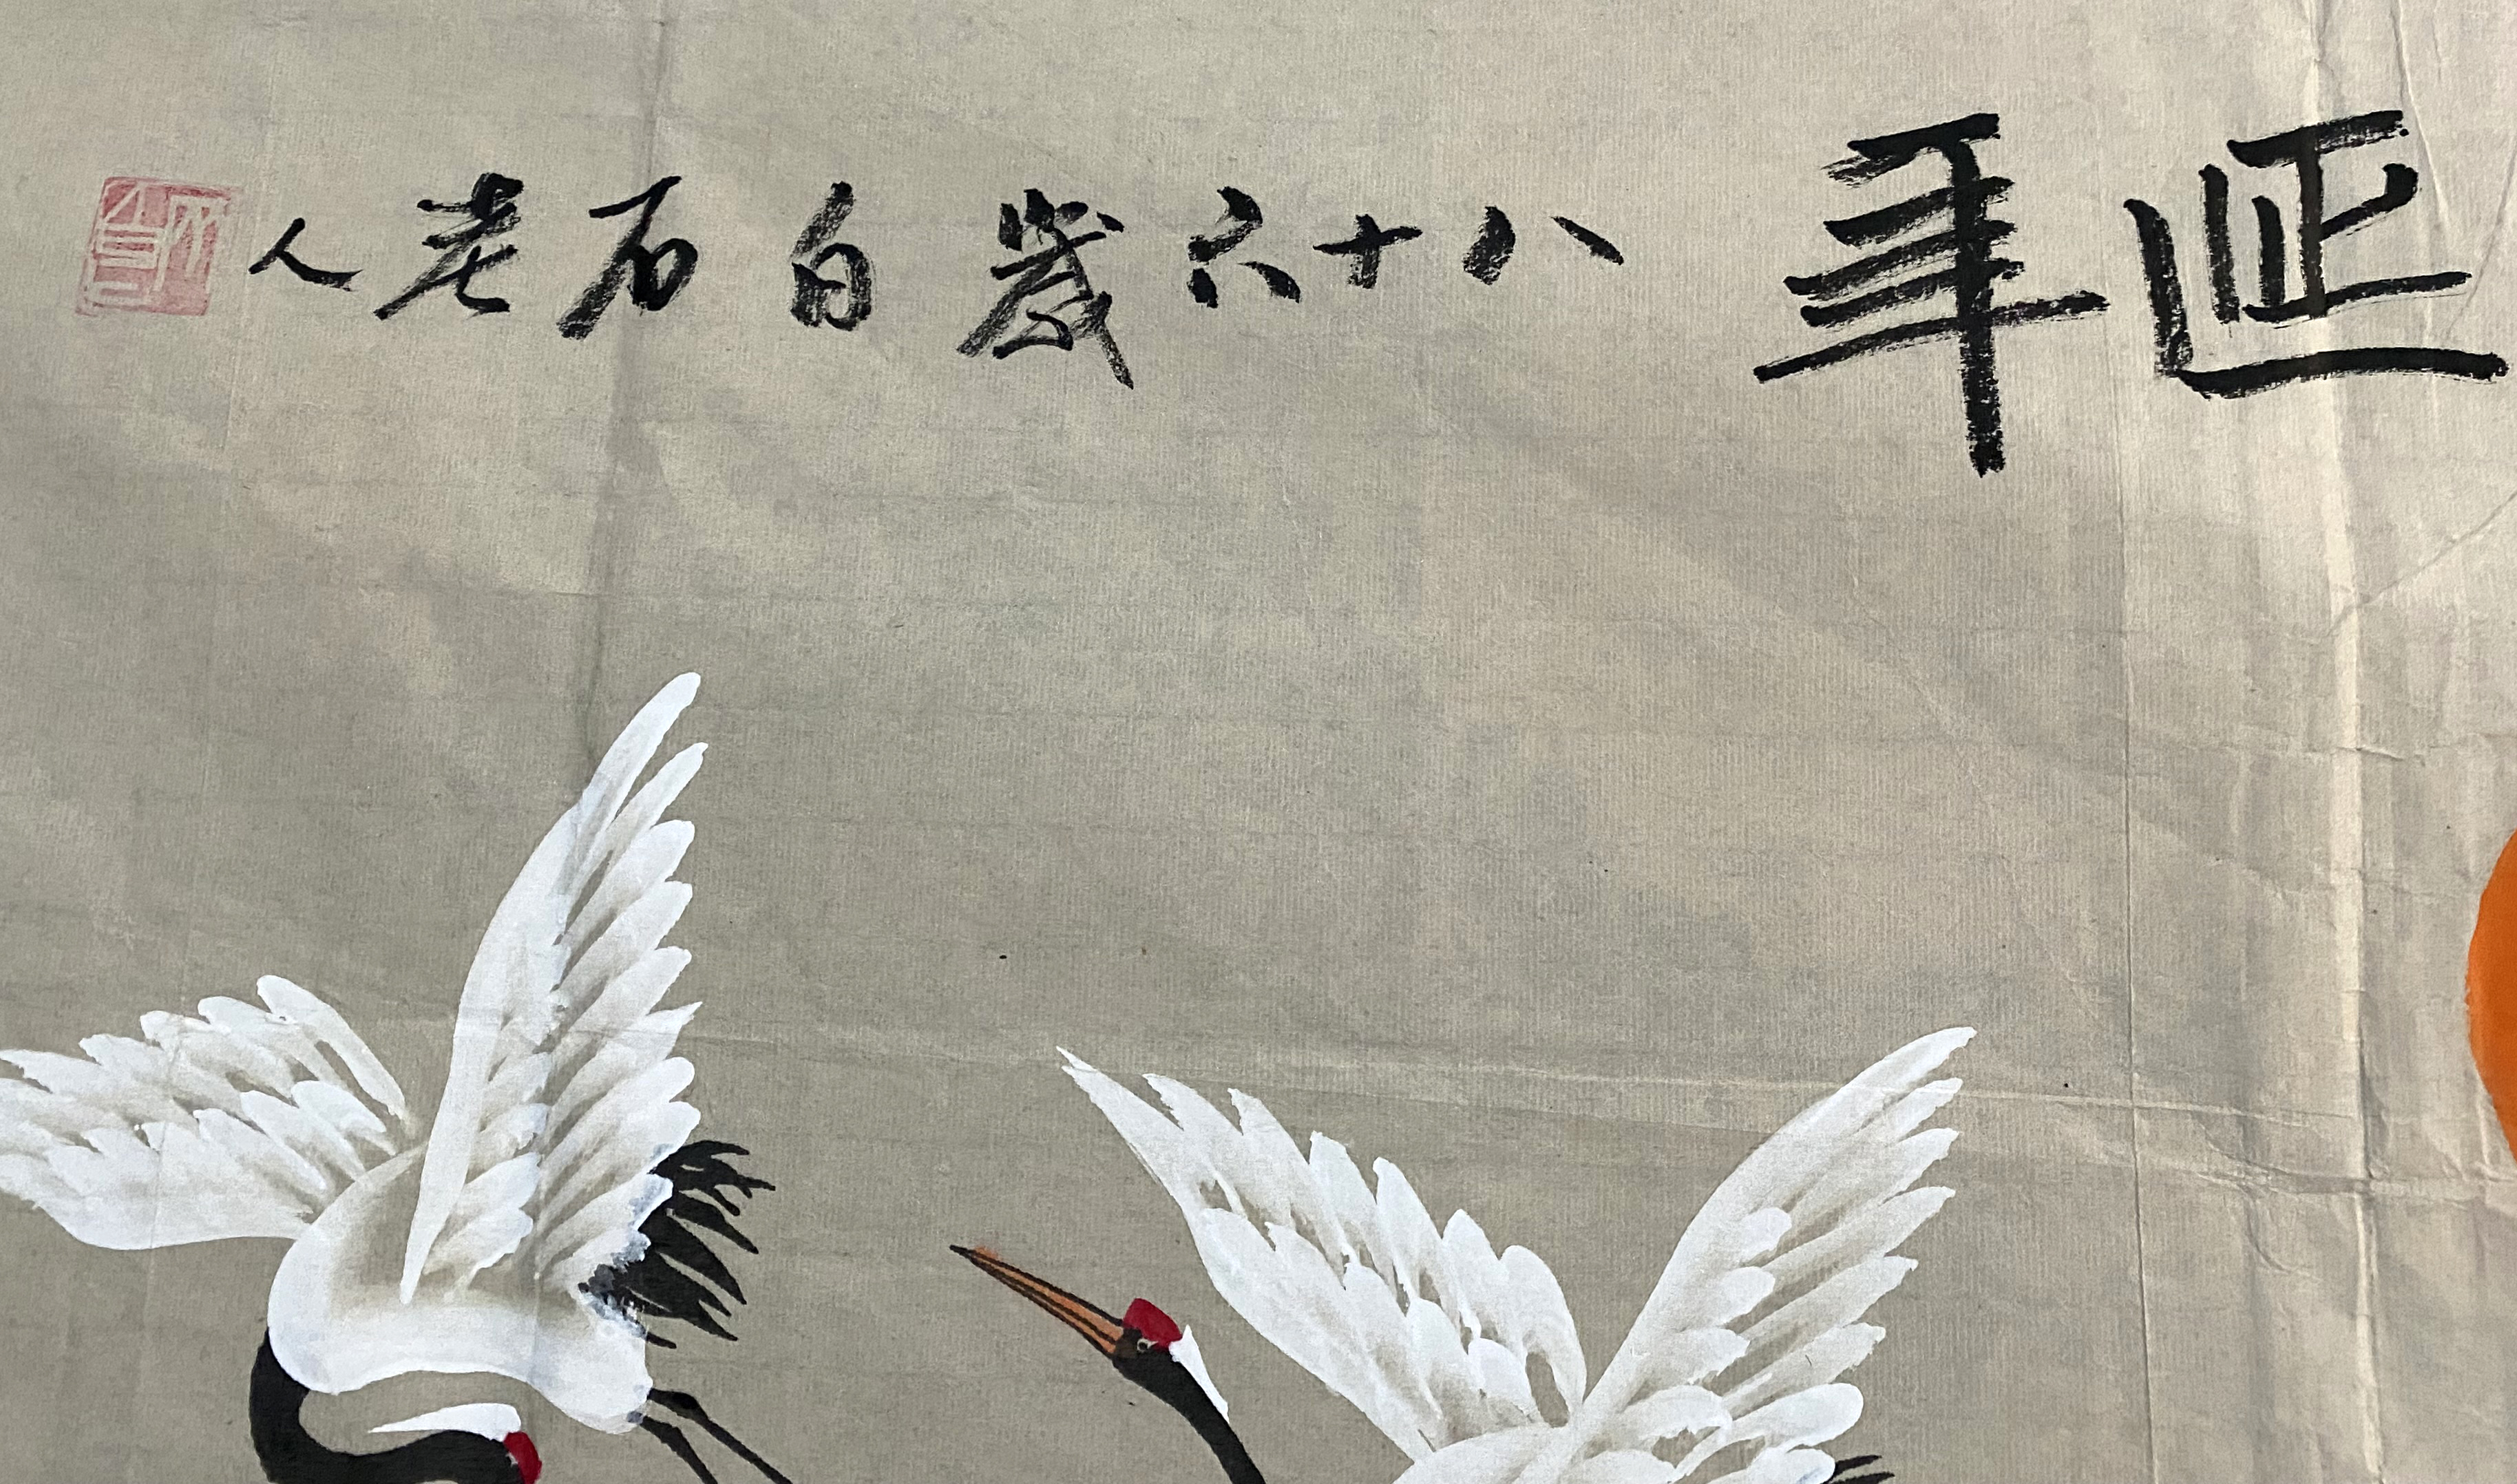 延年 八十六歲白石老人